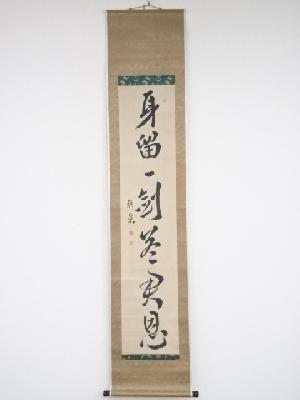 身留一剣答君恩